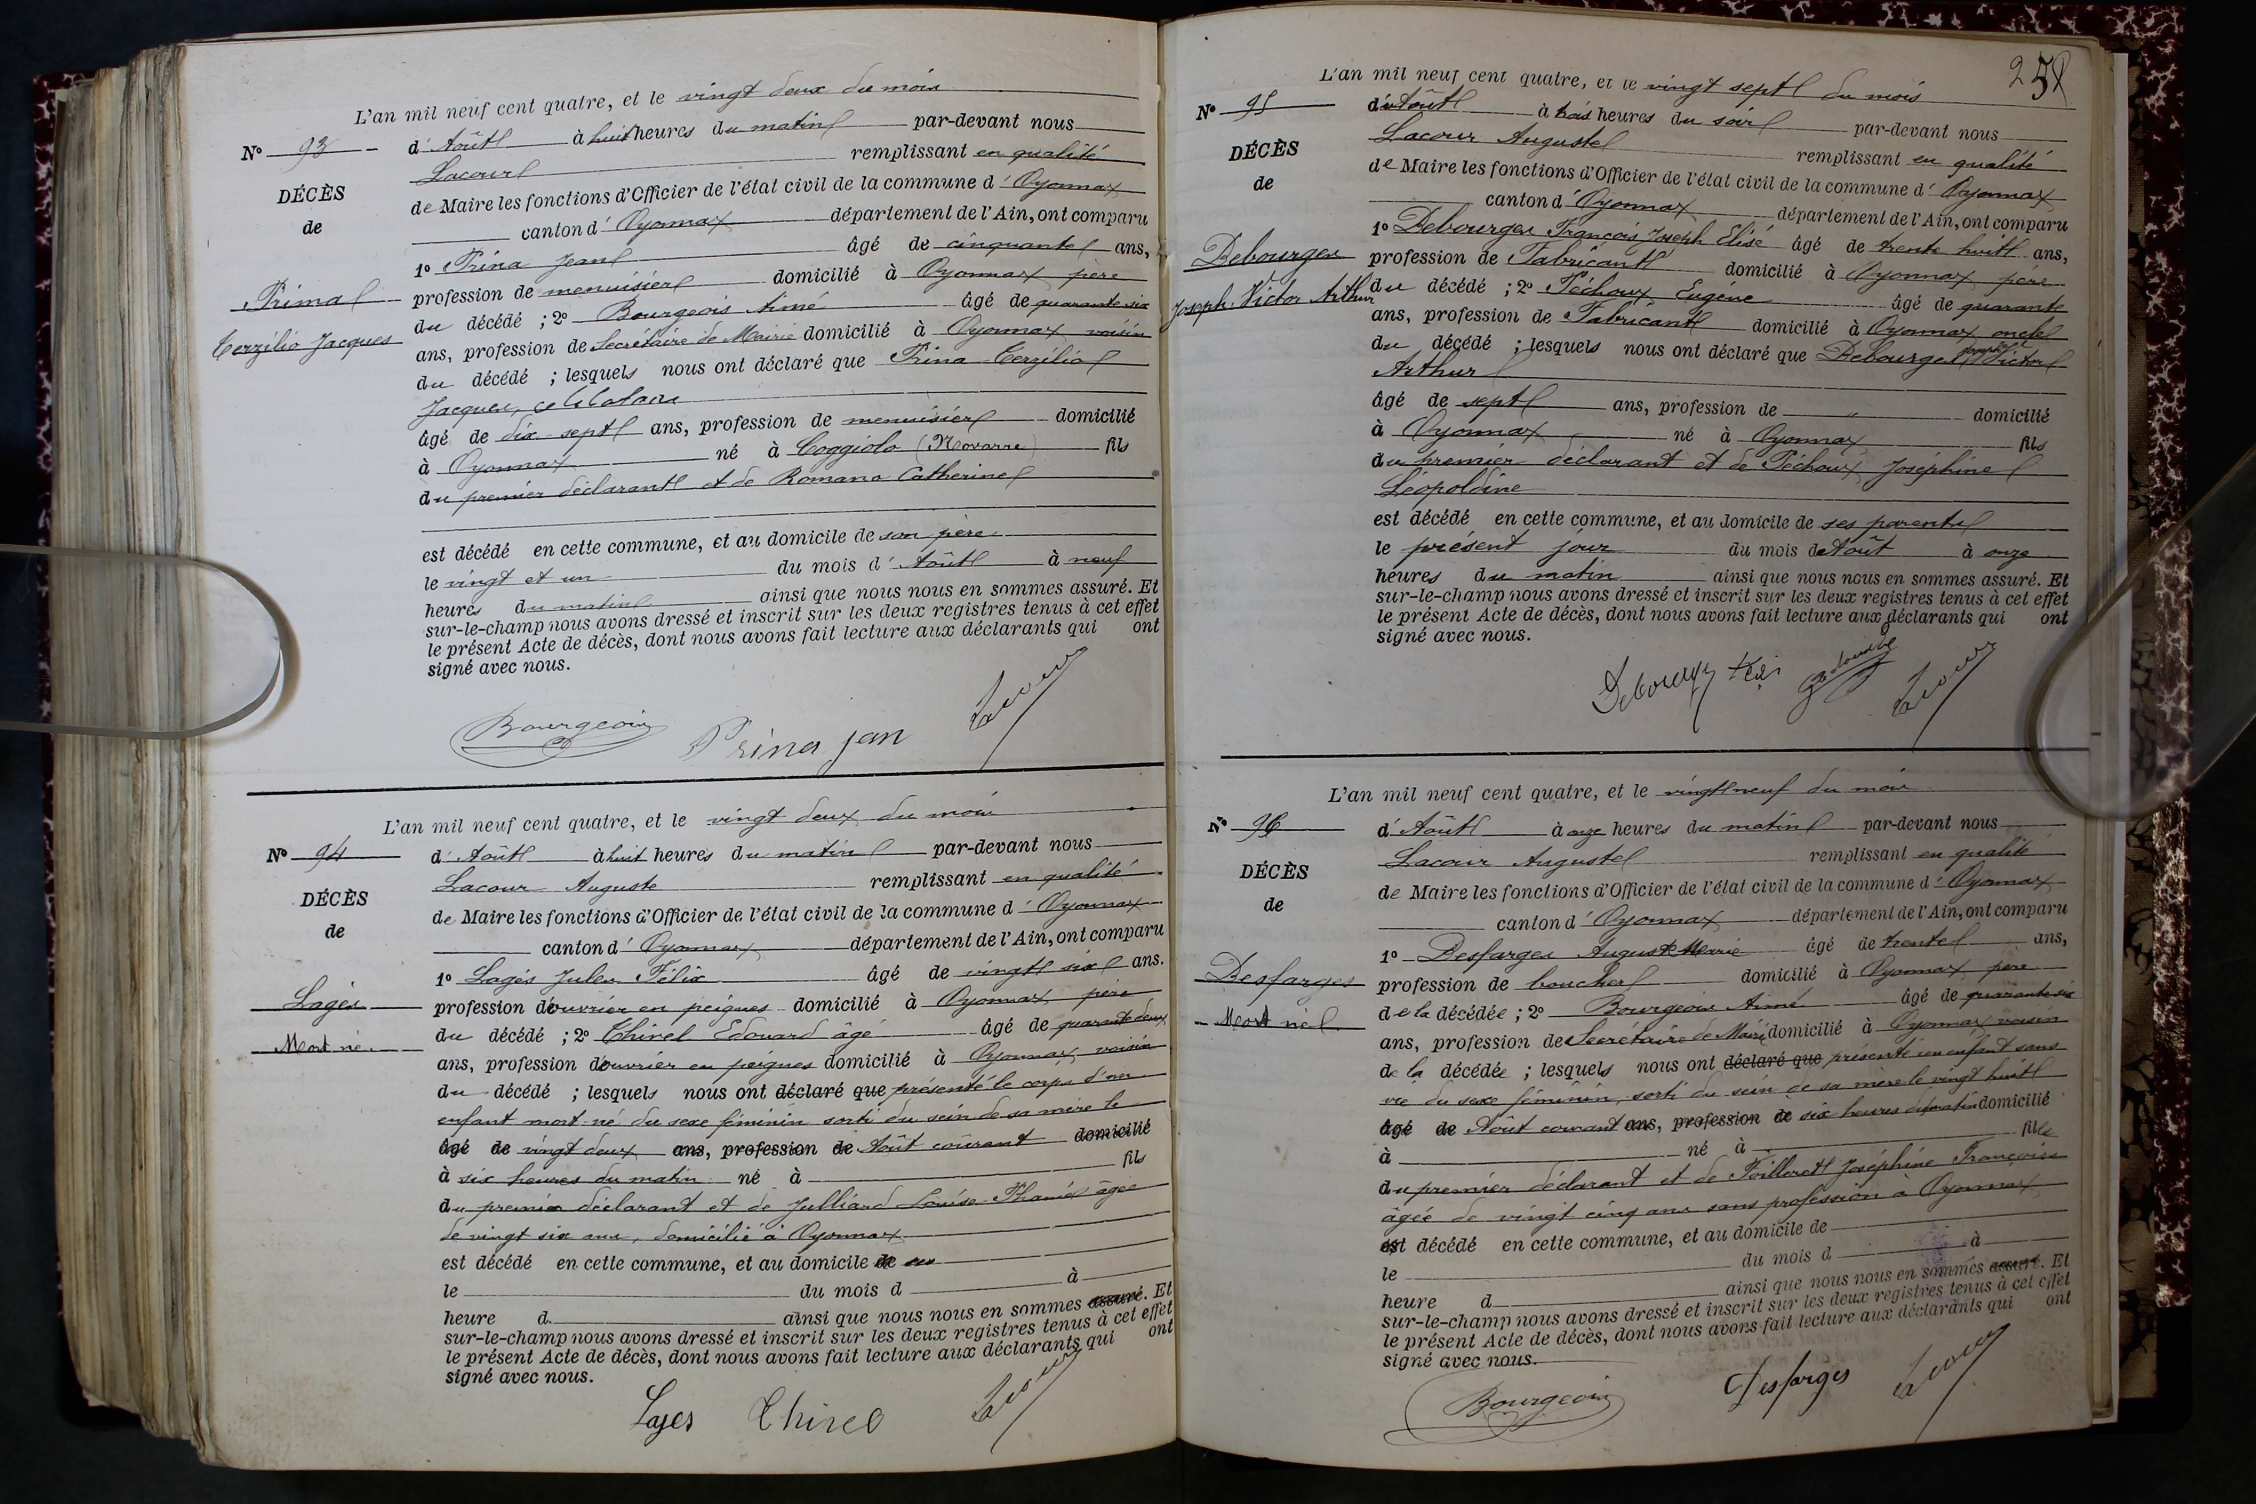 L'an mil neuf cent quatre, et le vingt deux du mois
N° 93
d'Août à huit heures du matin par-devant nous
DÉCÈS
de
Prina
Terzilio Jacques
Lacour remplissant en qualité
de Maire les fonctions d'Officier de l'état civil de la commune d'Oyonnax
canton d'Oyonnax département de l'Ain, ont comparu
1° Prina Jean âgé de cinquante ans,
profession de menuisier domicilié à Oyonnax père
du décédé ; 2° Bourgeois Aimé âgé de quarante six
ans, profession de Secrétaire de Mairie domicilié à Oyonnax voisin
du décédé ; lesquels nous ont déclaré que Prina Terzilio
Jacques, célibataire
âgé de dix-sept ans, profession de menuisier domicilié
à Oyonnax né à Coggiolo (Novarre) fils
du premier déclarant et de Romano Catherine
est décédé en cette commune, et au domicile de son père
le vingt et un du mois d'Août à neuf
heures du matin ainsi que nous nous en sommes assuré. Et
sur-le-champ nous avons dressé et inscrit sur les deux registres tenus à cet effet
le présent Acte de décès, dont nous avons fait lecture aux déclarants qui ont
signé avec nous.
Bourgeois Prina jan Lacour
L'an mil neuf cent quatre, et le vingt deux du mois
N° 94
d'Août à huit heures du matin par-devant nous
DÉCÈS
de
Lagès
Mort né
Lacour Auguste remplissant en qualité
de Maire les fonctions d'Officier de l'état civil de la commune d'Oyonnax
canton d'Oyonnax département de l'Ain, ont comparu
1° Lagès Jules Félix âgé de vingt six ans.
profession d'ouvrier en peignes domicilié à Oyonnax père
du décédé ; 2° Chirel Edouard âgé âgé de quarante deux
ans, profession d'ouvrier en peignes domicilié à Oyonnax, voisin
du décédé ; lesquels nous ont déclaré que présenté le corps d'un
enfant mort-né du sexe féminin sorti du sein de sa mère le
âgé de vingt deux ans, profession de Août courant domicilié
à six heures du matin né à fils
du premier déclarant et de Julliard Louise âgée
de vingt six ans, domicilié à Oyonnax
est décédé en cette commune, et au domicile de
le du mois d à
heure d ainsi que nous nous en sommes assuré. Et
sur-le-champ nous avons dressé et inscrit sur les deux registres tenus à cet effet
le présent Acte de décès, dont nous avons fait lecture aux déclarants qui ont
signé avec nous.
Lages Chirel Lacour
258
L'an mil neuf cent quatre, et le vingt sept du mois
N° 95
d'Août à trois heures du soir par-devant nous
DÉCÈS
de
Debourges
Joseph Victor Arthur
Lacour Auguste remplissant en qualité
de Maire les fonctions d'Officier de l'état civil de la commune d'Oyonnax
canton d'Oyonnax département de l'Ain, ont comparu
1° Debourges François Joseph Elisé âgé de trente huit ans,
profession de Fabricant domicilié à Oyonnax père
du décédé ; 2° Péchoux Eugène âgé de quarante
ans, profession de Fabricant domicilié à Oyonnax oncle
du décédé ; lesquels nous ont déclaré que Debourges Joseph Victor
Arthur
âgé de sept ans, profession de " domicilié
à Oyonnax né à Oyonnax fils
du premier déclarant et de Péchoux Joséphine
Léopoldine
est décédé en cette commune, et au domicile de ses parents
le présent jour du mois d'Août à onze
heures du matin ainsi que nous nous en sommes assuré. Et
sur-le-champ nous avons dressé et inscrit sur les deux registres tenus à cet effet
le présent Acte de décès, dont nous avons fait lecture aux déclarants qui ont
signé avec nous.
Lacour
L'an mil neuf cent quatre, et le vingt neuf du mois
N° 96
d'Août à onze heures du matin par-devant nous
DÉCÈS
de
Desfarges
Mort né
Lacour Auguste remplissant en qualité
de Maire les fonctions d'Officier de l'état civil de la commune d'Oyonnax
canton d'Oyonnax département de l'Ain, ont comparu
1° Desfarges Auguste Marie âgé de trente ans,
profession de boucher domicilié à Oyonnax père
de la décédée ; 2° Bourgeois Aimé âgé de quarante six
ans, profession de Secrétaire de Mairie domicilié à Oyonnax voisin
de la décédée ; lesquels nous ont déclaré que présenté un enfant sans
vie du sexe féminin, sorti du sein de sa mère le vingt huit
âgé de Août courant ans, profession de six heures du matin domicilié
à né à fils
du premier déclarant et de Joséphine Françoise
âgée de vingt cinq ans sans profession à Oyonnax
est décédé en cette commune, et au domicile de
le du mois d à
heure d ainsi que nous nous en sommes assuré. Et
sur-le-champ nous avons dressé et inscrit sur les deux registres tenus à cet effet
le présent Acte de décès, dont nous avons fait lecture aux déclarants qui ont
signé avec nous.
Bourgeois Desfarges Lacour